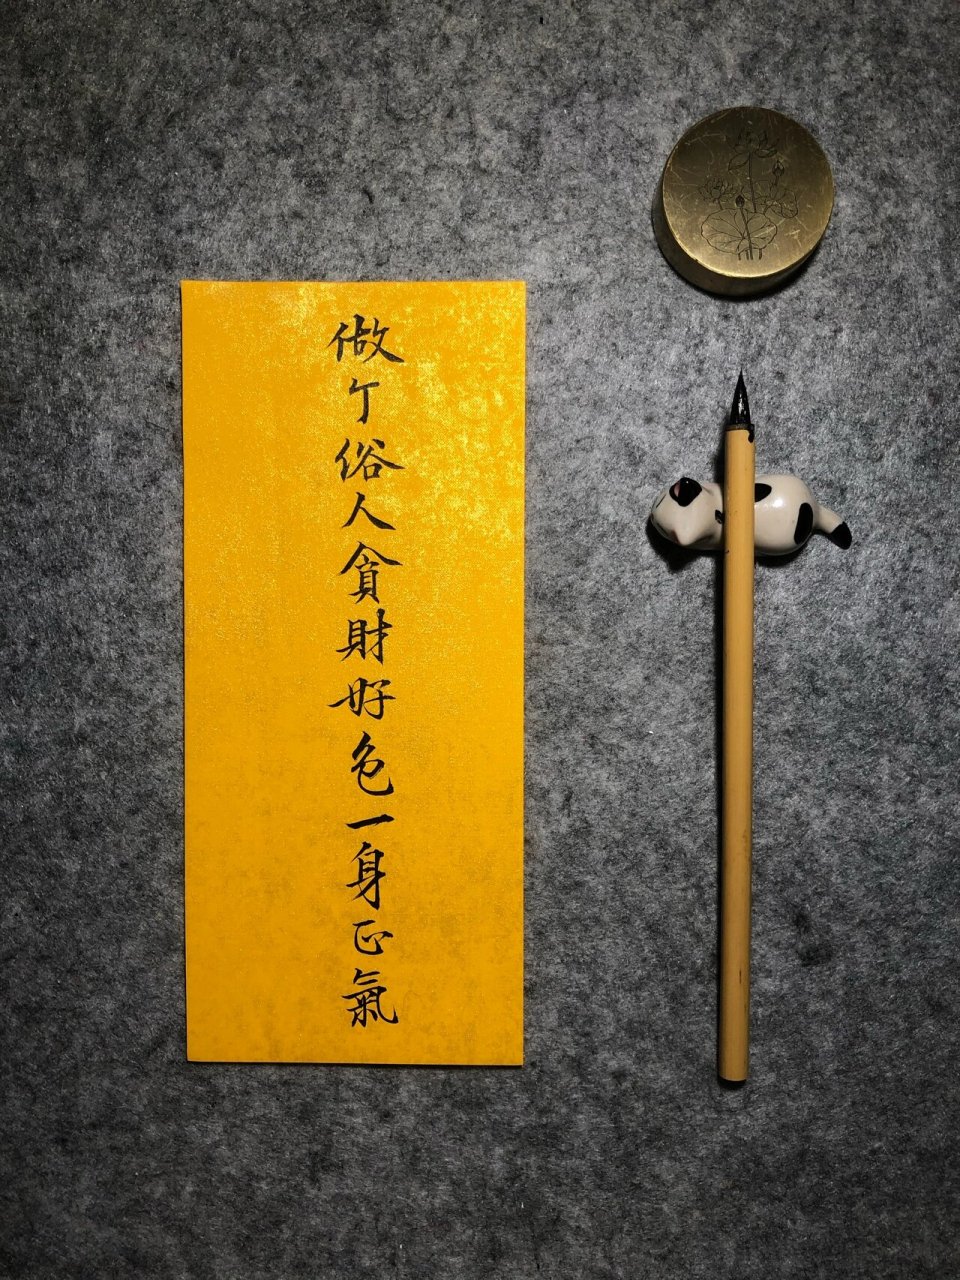 做个俗人貪財好色一身正氣